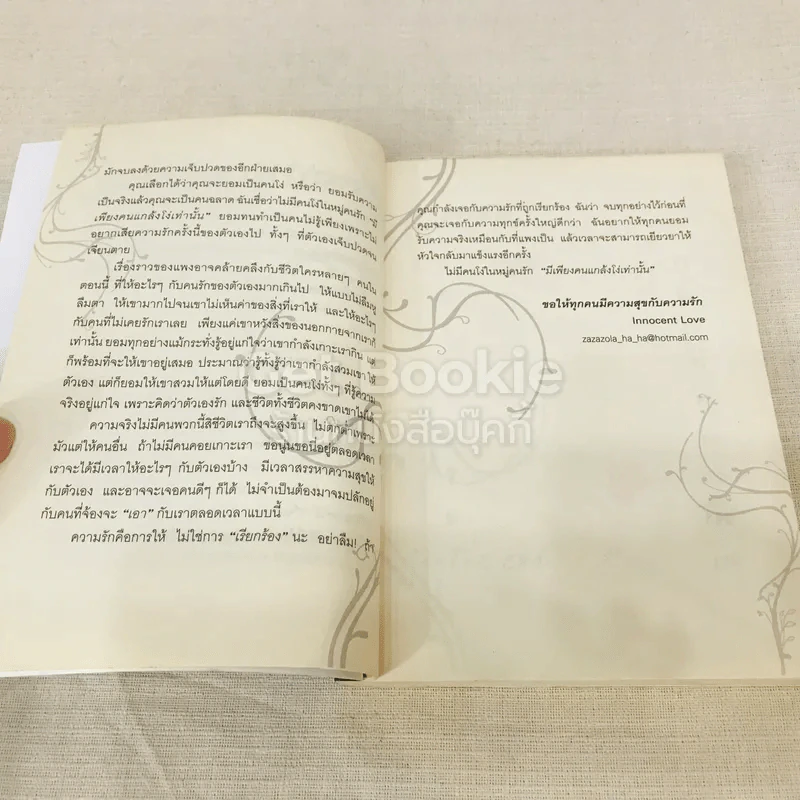 มักจบลงด้วยความเจ็บปวดของอีกฝ่ายเสมอ
คุณเลือกได้ว่าคุณจะยอมเป็นคนโง่ หรือว่า ยอมรับความ
เป็นจริงแล้วคุณจะเป็นคนฉลาด ฉันเชื่อว่าไม่มีคนโง่ในหมู่คนรัก “มี
เพียงคนแกล้งโง่เท่านั้น” ยอมทนทำเป็นคนไม่รู้เพียงเพราะไม่
อยากเสียความรักครั้งนี้ของตัวเองไป ทั้งๆ ที่ตัวเองเจ็บปวดจน
เจียนตาย
เรื่องราวของแพงอาจคล้ายคลึงกับชีวิตใครหลายๆ คนใน
ตอนนี้ ที่ให้อะไรๆ กับคนรักของตัวเองมากเกินไป ให้แบบไม่ลืมหู
ลืมตา ให้เขามากไปจนเขาไม่เห็นค่าของสิ่งที่เราให้ และให้อะไรๆ
กับคนที่ไม่เคยรักเราเลย เพียงแค่เขาหวังสิ่งของนอกกายจากเราก็
เท่านั้น ยอมทุกอย่างแม้กระทั่งรู้อยู่แก่ใจว่าเขากำลังเกาะเรากิน แต่
ก็พร้อมที่จะให้เขาอยู่เสมอ ประมาณว่ารู้ทั้งรู้ว่าเขากำลังสวมเขาให้
ตัวเอง แต่ก็ยอมให้เขาสวมให้แต่โดยดี ยอมเป็นคนโง่ทั้งๆ ที่รู้ความ
จริงอยู่แก่ใจ เพราะคิดว่าตัวเองรัก และชีวิตทั้งชีวิตคงขาดเขาไม่ได้
ความจริงไม่มีคนพวกนี้สิชีวิตเราถึงจะสูงขึ้น ไม่ตกต่ำเพราะ
มัวแต่ให้คนอื่น ถ้าไม่มีคนคอยเกาะเรา ขอนู่นขอนี่อยู่ตลอดเวลา
เราจะได้มีเวลาให้อะไรๆ กับตัวเองบ้าง มีเวลาสรรหาความสุขให้
กับตัวเอง และอาจจะเจอคนดีๆ ก็ได้ ไม่จำเป็นต้องมาจมปลักอยู่
กับคนที่จ้องจะ “เอา” กับเราตลอดเวลาแบบนี้
ความรักคือการให้ ไม่ใช่การ “เรียกร้อง” นะ อย่าลืม! ถ้า
คุณกำลังเจอกับความรักที่ถูกเรียกร้อง ฉันว่า จบทุกอย่างไว้ก่อนที่
คุณจะเจอกับความทุกข์ครั้งใหญ่ดีกว่า ฉันอยากให้ทุกคนยอม
รับความจริงเหมือนกับที่แพงเป็น แล้วเวลาจะสามารถเยียวยาให้
หัวใจกลับมาแข็งแรงอีกครั้ง
ไม่มีคนโง่ในหมู่คนรัก “มีเพียงคนแกล้งโง่เท่านั้น”
ขอให้ทุกคนมีความสุขกับความรัก
Innocent Love
zazazola_ha_ha@hotmail.com
Bookie